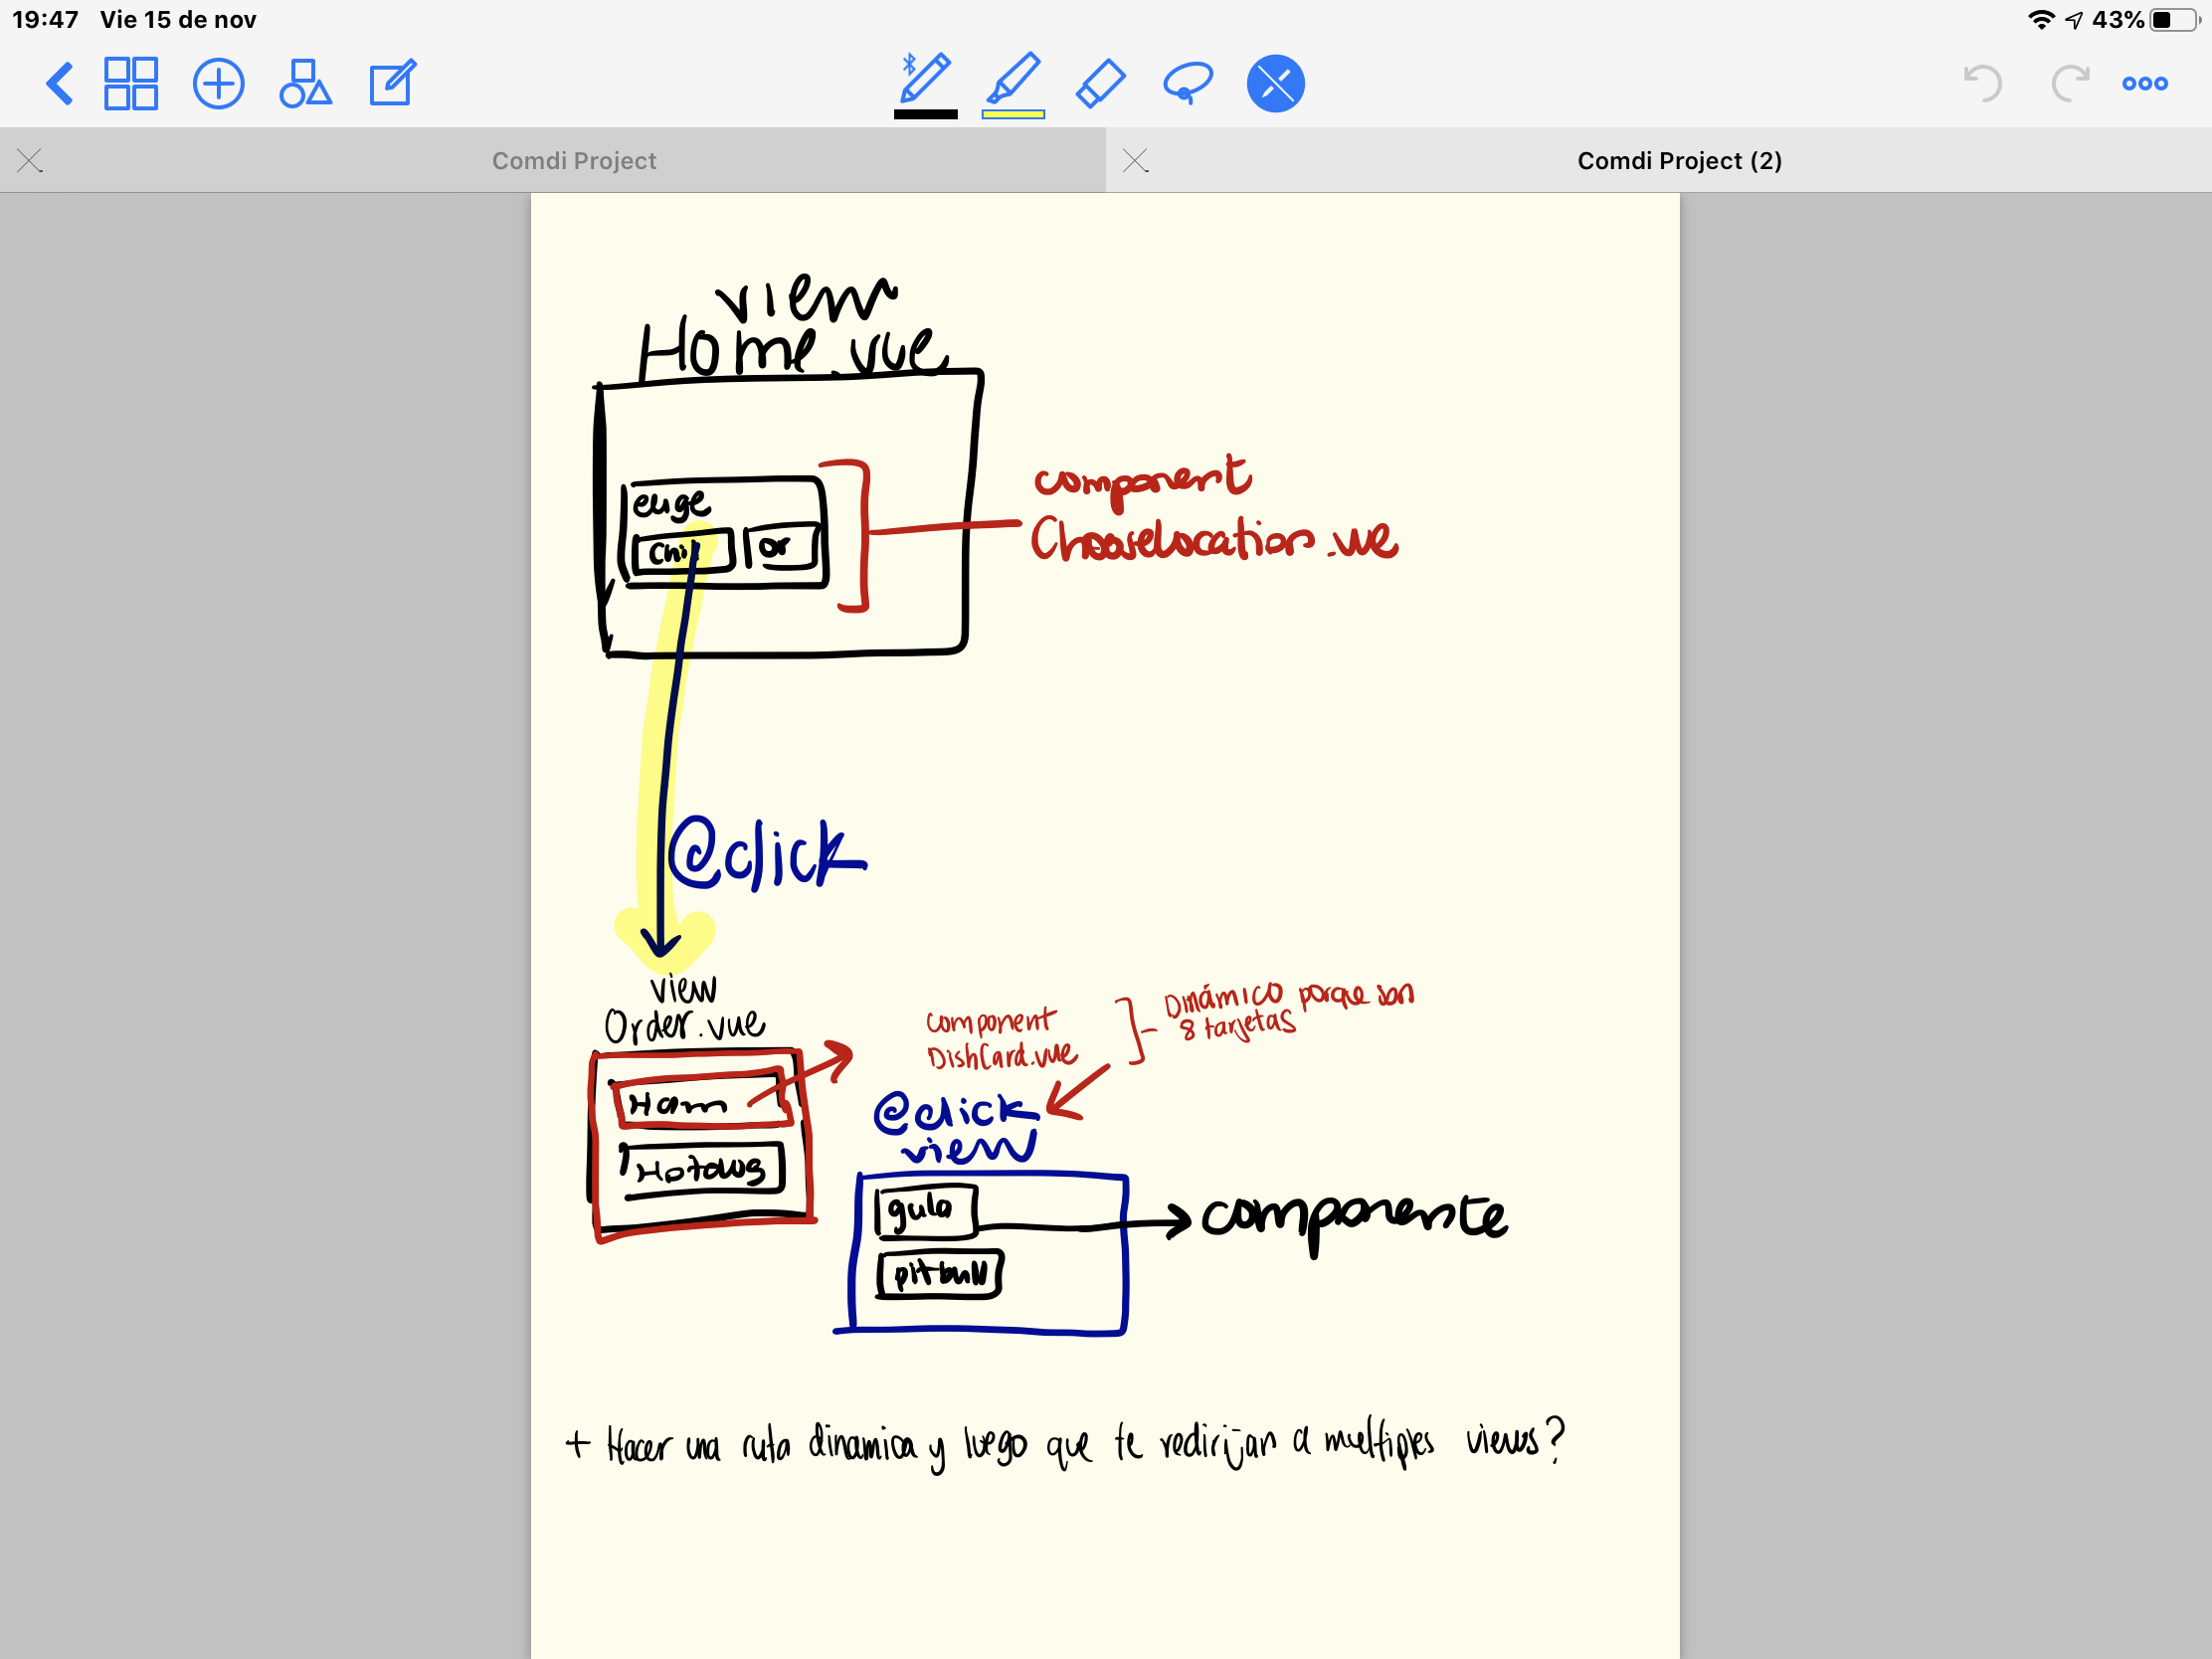 19:47 Vie 15 de nov
43%
Comdi Project
Comdi Project (2)
view
Home.vue
elige
Chil
or
component
ChooseLocation.vue
@click
view
Order.vue
component
DishCard.vue
Dinámico porque son
8 tarjetas
Ham
@click
view
gula
pitbull
componente
+ Hacer una ruta dinamica y luego que te redirijan a multiples views?